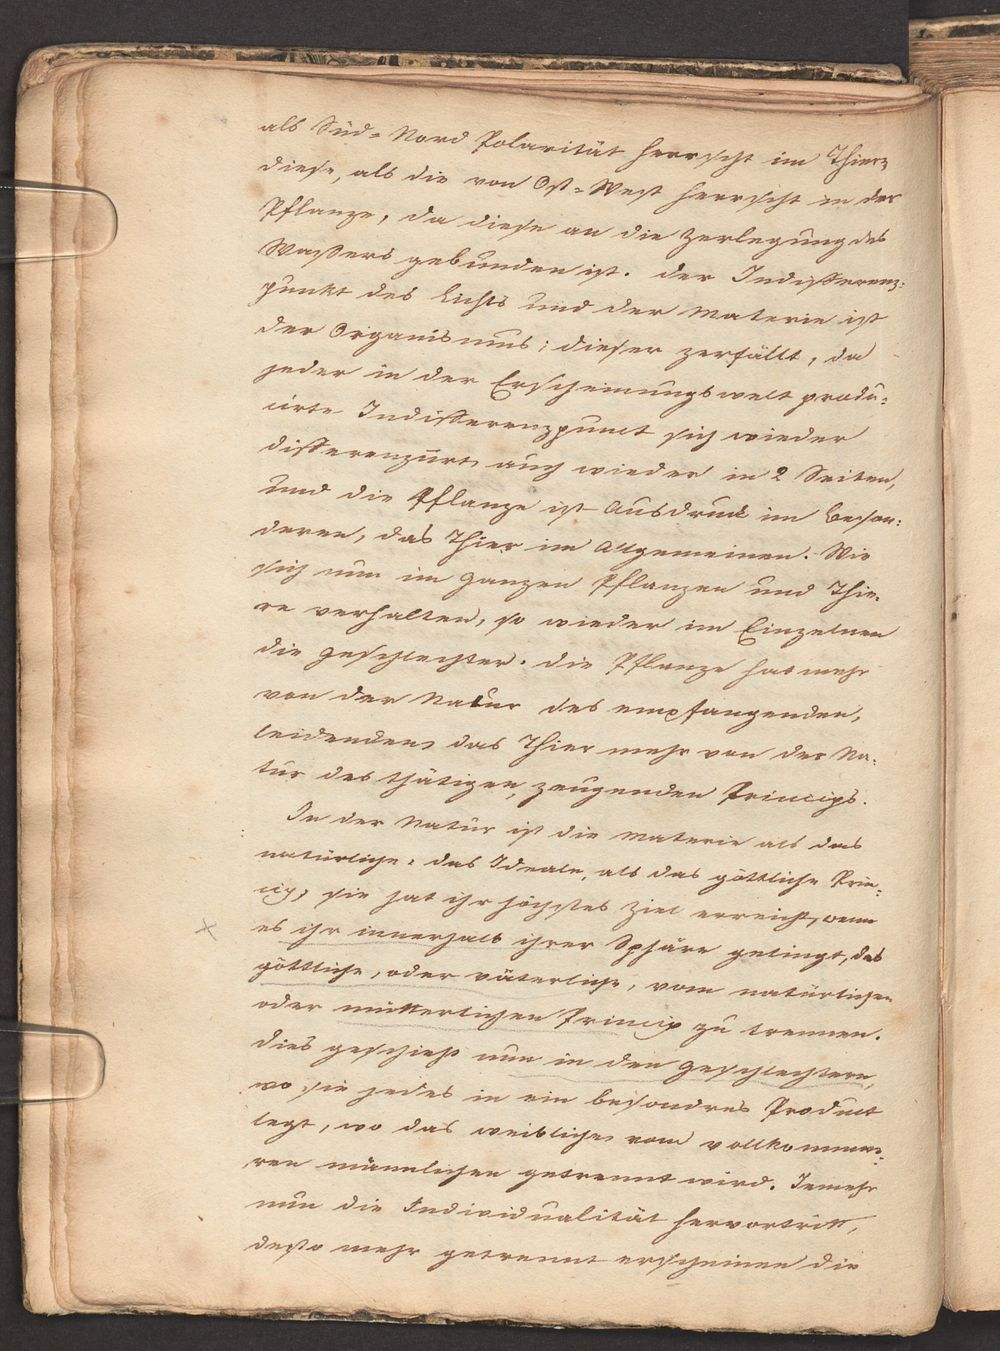 als Süd-Nord Polarität herrscht im Thier,
diese, als die von Ost-West herrscht in der
Pflanze, da diese an die Zerlegung des
Waßers gebunden ist. der Indifferenz-
punkt des Lichts und der Materie ist
der Organismus; dieser zerfällt, da
jeder in der Erscheinungswelt produ-
cirte Indifferenzpunct sich wieder
differenzirt, auch wieder in 2 Seiten,
und die Pflanze ist Ausdruck im Beson-
deren, das Thier im Allgemeinen. Wie
sich nun im Ganzen Pflanzen und Thie-
re verhalten, so wieder im Einzelnen
die Geschlechter. die Pflanze hat mehr
von der Natur des empfangenden,
leidenden, das Thier mehr von der Na-
tur des thätigen, zeugenden Princips.
In der Natur ist die Materie als das
natürliche, das Ideale, als das göttliche Prin-
cip; sie hat ihr höchstes Ziel erreicht, wenn
es ihr innerhalb ihrer Sphäre gelingt, das
göttliche, oder väterliche, vom natürlichen
oder mütterlichen Princip zu trennen.
dies geschieht nun in den Geschlechtern,
wo sie jedes in ein besondres Product
legt, wo das weibliche vom vollkomme-
ren männlichen getrennt wird. Jemehr
nun die Individualität hervortritt,
desto mehr getrennt erscheinen die